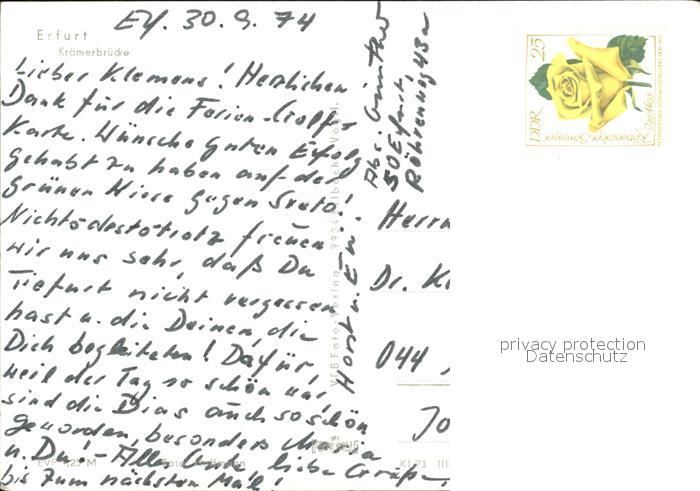 Erfurt
Krämerbrücke
Ef. 30.9.74
Lieber Klemens! Herzlichen
Dank für die Ferien-Golf
Karte. Wünsche guten Erfolg
gehabt zu haben auf der
grünen Wiese gegen
Nichtsdestotrotz freuen
wir uns sehr, daß Du
Tiefurt nicht vergessen
hast u. die Deinen, die
Dich begleiteten! Dafür,
weil der Tag so schön war,
sind die Dias auch so schön
geworden, besonders
u. Du! - Alles Gute, liebe Grüße,
bis zum nächsten Mal!
Horst u.
Abs.
50 Erfurt
Röhrenweg 43a
VEB Foto-Verlag 9934
EVP -,25 M
Foto
K1/73 III
Herrn
Dr. Kl
044
Jo
25
DDR
Köpenicker Sommer
privacy protection
Datenschutz